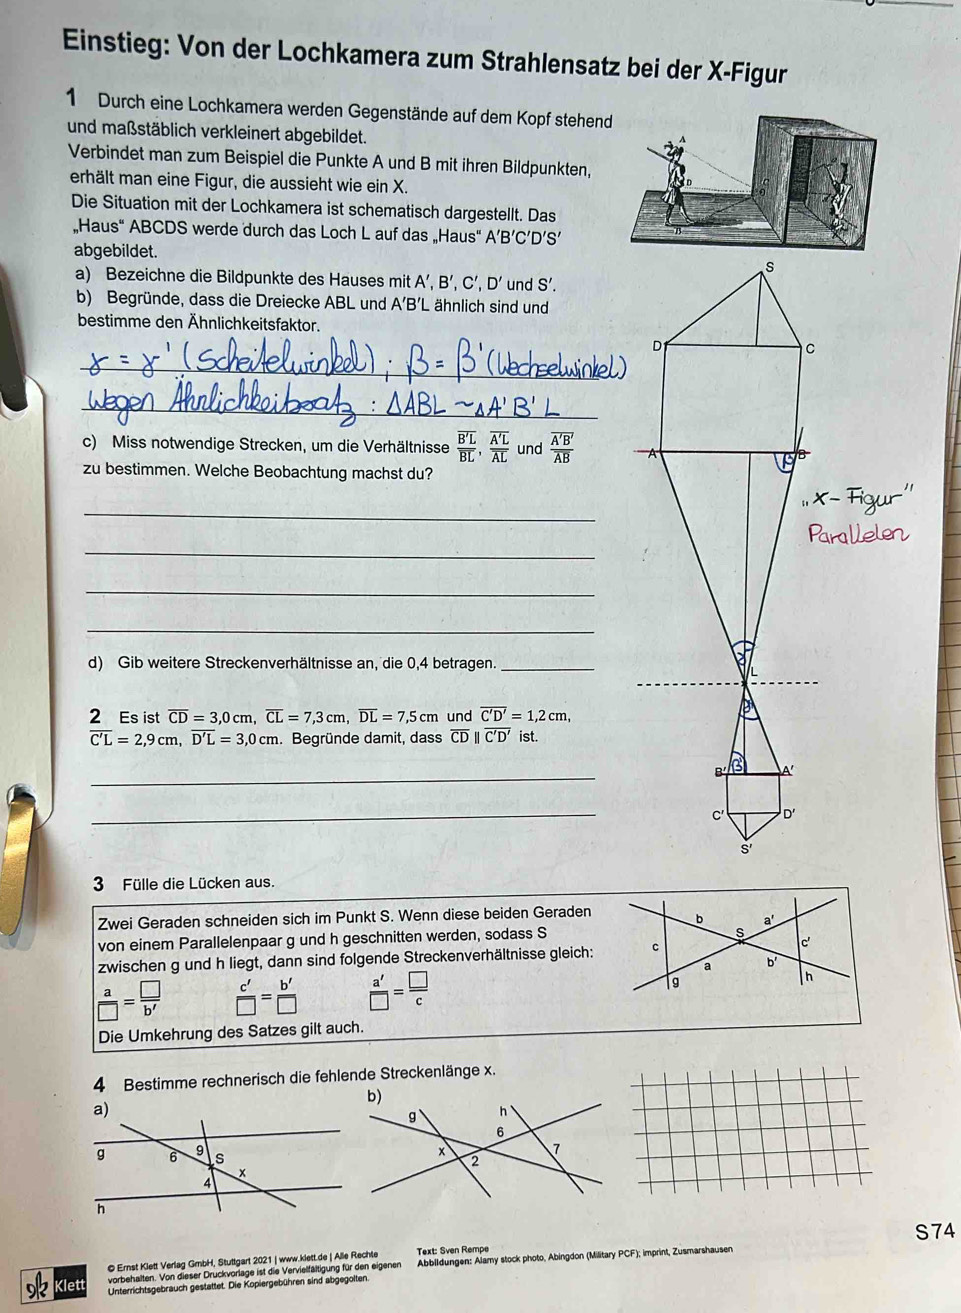 Einstieg: Von der Lochkamera zum Strahlensatz bei der X-Figur
1 Durch eine Lochkamera werden Gegenstände auf dem Kopf stehend
und maßstäblich verkleinert abgebildet.
Verbindet man zum Beispiel die Punkte A und B mit ihren Bildpunkten,
erhält man eine Figur, die aussieht wie ein X.
Die Situation mit der Lochkamera ist schematisch dargestellt. Das
„Haus“ ABCDS werde durch das Loch L auf das „Haus“ A′B′C′D′S′
abgebildet.
a) Bezeichne die Bildpunkte des Hauses mit A′, B′, C′, D′ und S′.
b) Begründe, dass die Dreiecke ABL und A′B′L ähnlich sind und
bestimme den Ähnlichkeitsfaktor.
γ = γ' (Scheitelwinkel) ; β = β' (Wechselwinkel)
Wegen Ähnlichkeitssatz : ΔABL ~ ΔA'B'L
c) Miss notwendige Strecken, um die Verhältnisse B′L/BL, A′L/AL und A′B′/AB
zu bestimmen. Welche Beobachtung machst du?
d) Gib weitere Streckenverhältnisse an, die 0,4 betragen.
A
D
C
B
S
D
C
A
B
β
„X-Figur"
Parallelen
γ
L
γ'
B′
β'
A′
C′
D′
S′
2 Es ist CD = 3,0 cm, CL = 7,3 cm, DL = 7,5 cm und C′D′ = 1,2 cm,
C′L = 2,9 cm, D′L = 3,0 cm. Begründe damit, dass CD ∥ C′D′ ist.
3 Fülle die Lücken aus.
Zwei Geraden schneiden sich im Punkt S. Wenn diese beiden Geraden
von einem Parallelenpaar g und h geschnitten werden, sodass S
zwischen g und h liegt, dann sind folgende Streckenverhältnisse gleich:
a/□ = □/b′ c′/□ = b′/□ a′/□ = □/c
Die Umkehrung des Satzes gilt auch.
b
a′
S
c
c′
a
b′
g
h
4 Bestimme rechnerisch die fehlende Streckenlänge x.
a)
g
6
9
S
x
4
h
b)
g
h
6
x
2
7
S74
Klett
© Ernst Klett Verlag GmbH, Stuttgart 2021 | www.klett.de | Alle Rechte
vorbehalten. Von dieser Druckvorlage ist die Vervielfältigung für den eigenen
Unterrichtsgebrauch gestattet. Die Kopiergebühren sind abgegolten.
Text: Sven Rempe
Abbildungen: Alamy stock photo, Abingdon (Military PCF); imprint, Zusmarshausen